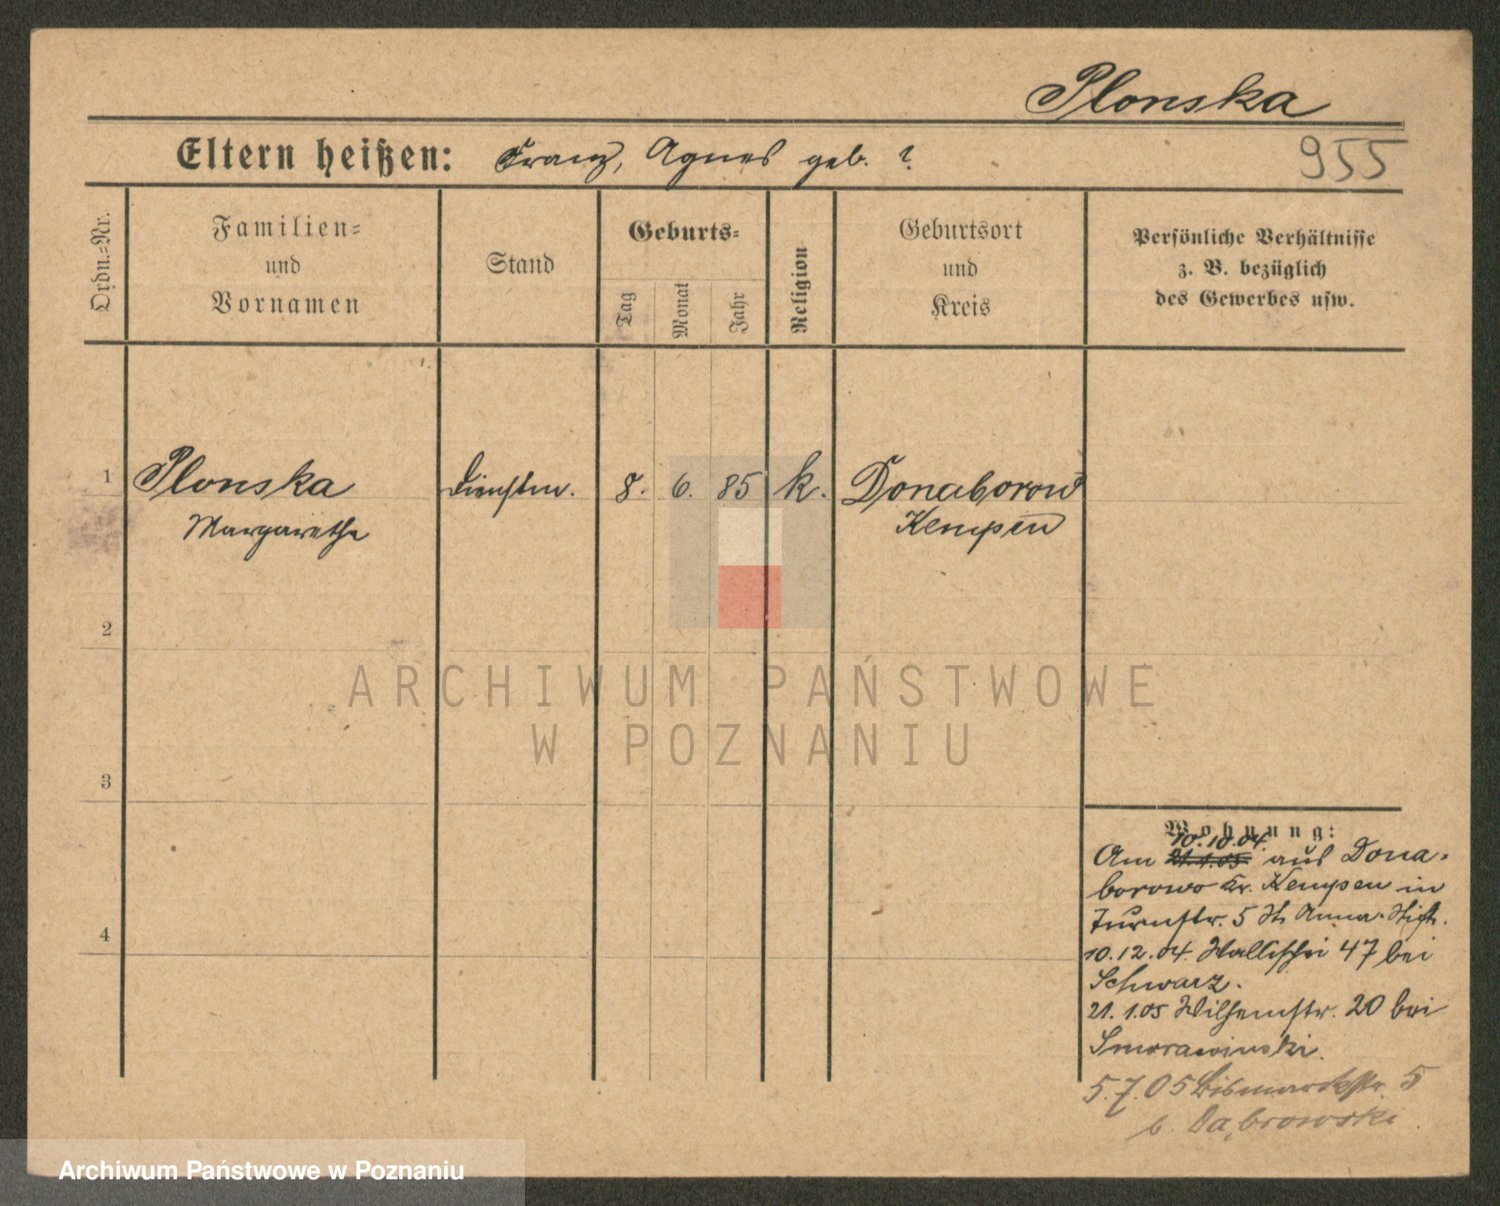 Plonska
Eltern heißen: Franz, Agnes geb. ?
955
Ordn.=Nr.
Familien=
und
Vornamen
Stand
Geburts=
Tag
Monat
Jahr
Religion
Geburtsort
und
Kreis
Persönliche Verhältnisse
z. B. bezüglich
des Gewerbes usw.
1
Plonska
Margarethe
Dienstm.
8. 6. 85
k.
Donaborow
Kempen
2
3
4
Wohnung:
10.10.04
Am 21.1.05 aus Dona-
borowo Kr. Kempen in
Turnstr. 5 St. Anna-Stift.
10.12.04 Wallischei 47 bei
Schwarz.
21.1.05 Wilhelmstr. 20 bei
Smorawinski.
5.7.05 Bismarckstr. 5
b. Dąbrowski.
ARCHIWUM PAŃSTWOWE
W POZNANIU
Archiwum Państwowe w Poznaniu